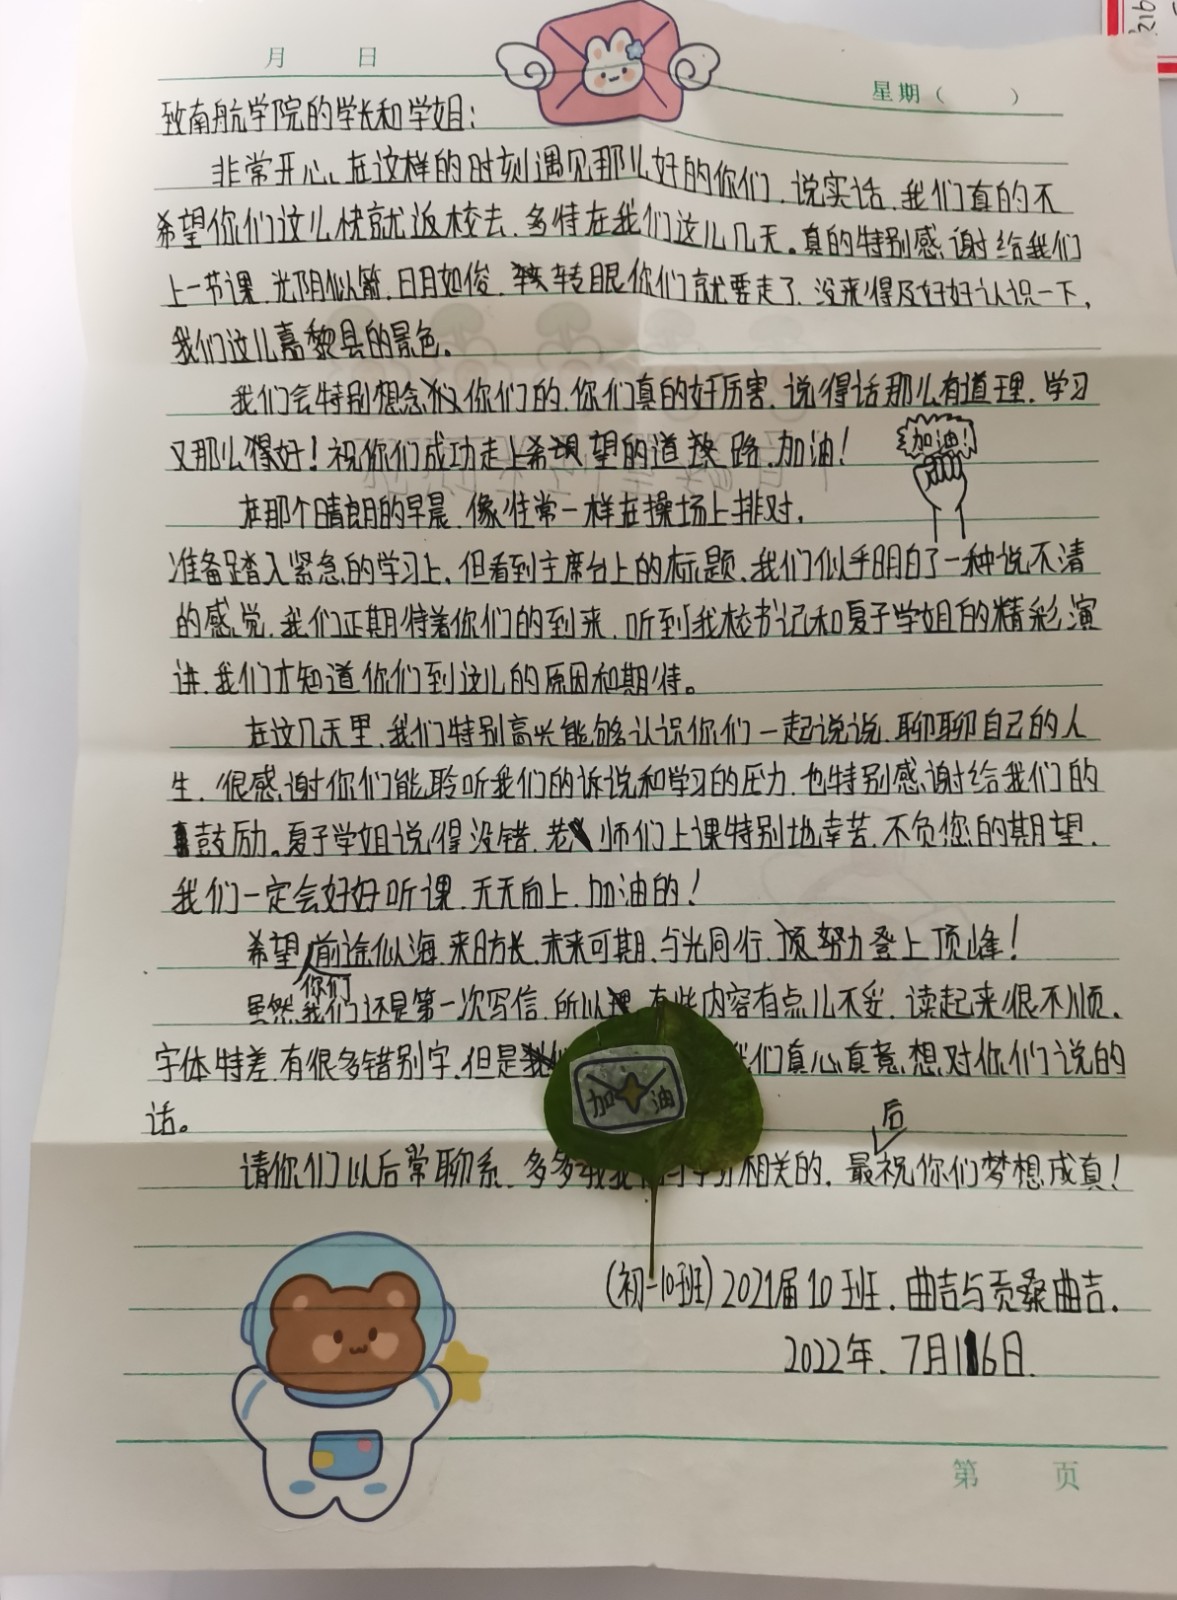 月 日
星期( )
致南航学院的学长和学姐:
非常开心,在这样的时刻遇见那么好的你们,说实话,我们真的不
希望你们这么快就返校去,多待在我们这儿几天。真的特别感谢给我们
上一节课,光阴似箭,日月如俊,转眼你们就要走了,没来得及好好认识一下,
我们这儿嘉黎县的景色。
我们会特别想念你们的,你们真的好厉害,说得话那么有道理,学习
又那么得好!祝你们成功走上希望的道路,加油!
加油!
在那个晴朗的早晨,像往常一样在操场上排对,
准备踏入紧急的学习上,但看到主席台上的标题,我们似乎明白了一种说不清
的感觉,我们正期待着你们的到来,听到我校书记和夏子学姐的精彩演
讲,我们才知道你们到这儿的原因和期待。
在这几天里,我们特别高兴能够认识你们一起说说,聊聊自己的人
生,很感谢你们能聆听我们的诉说和学习的压力,也特别感谢给我们的
鼓励。夏子学姐说得没错,老师们上课特别地幸苦,不负您的期望,
我们一定会好好听课,天天向上,加油的!
希望你们前途似海,来日方长,未来可期,与光同行,顶努力登上顶峰!
虽然我们还是第一次写信,所以有些内容有点儿不妥,读起来很不顺,
字体特差,有很多错别字,但是 我们真心真意想对你们说的
话。
加油
请你们以后常聊系,多多 相关的,最后祝你们梦想成真!
(初一10班)2021届10班,曲吉与贡桑曲吉.
2022年,7月16日.
第 页